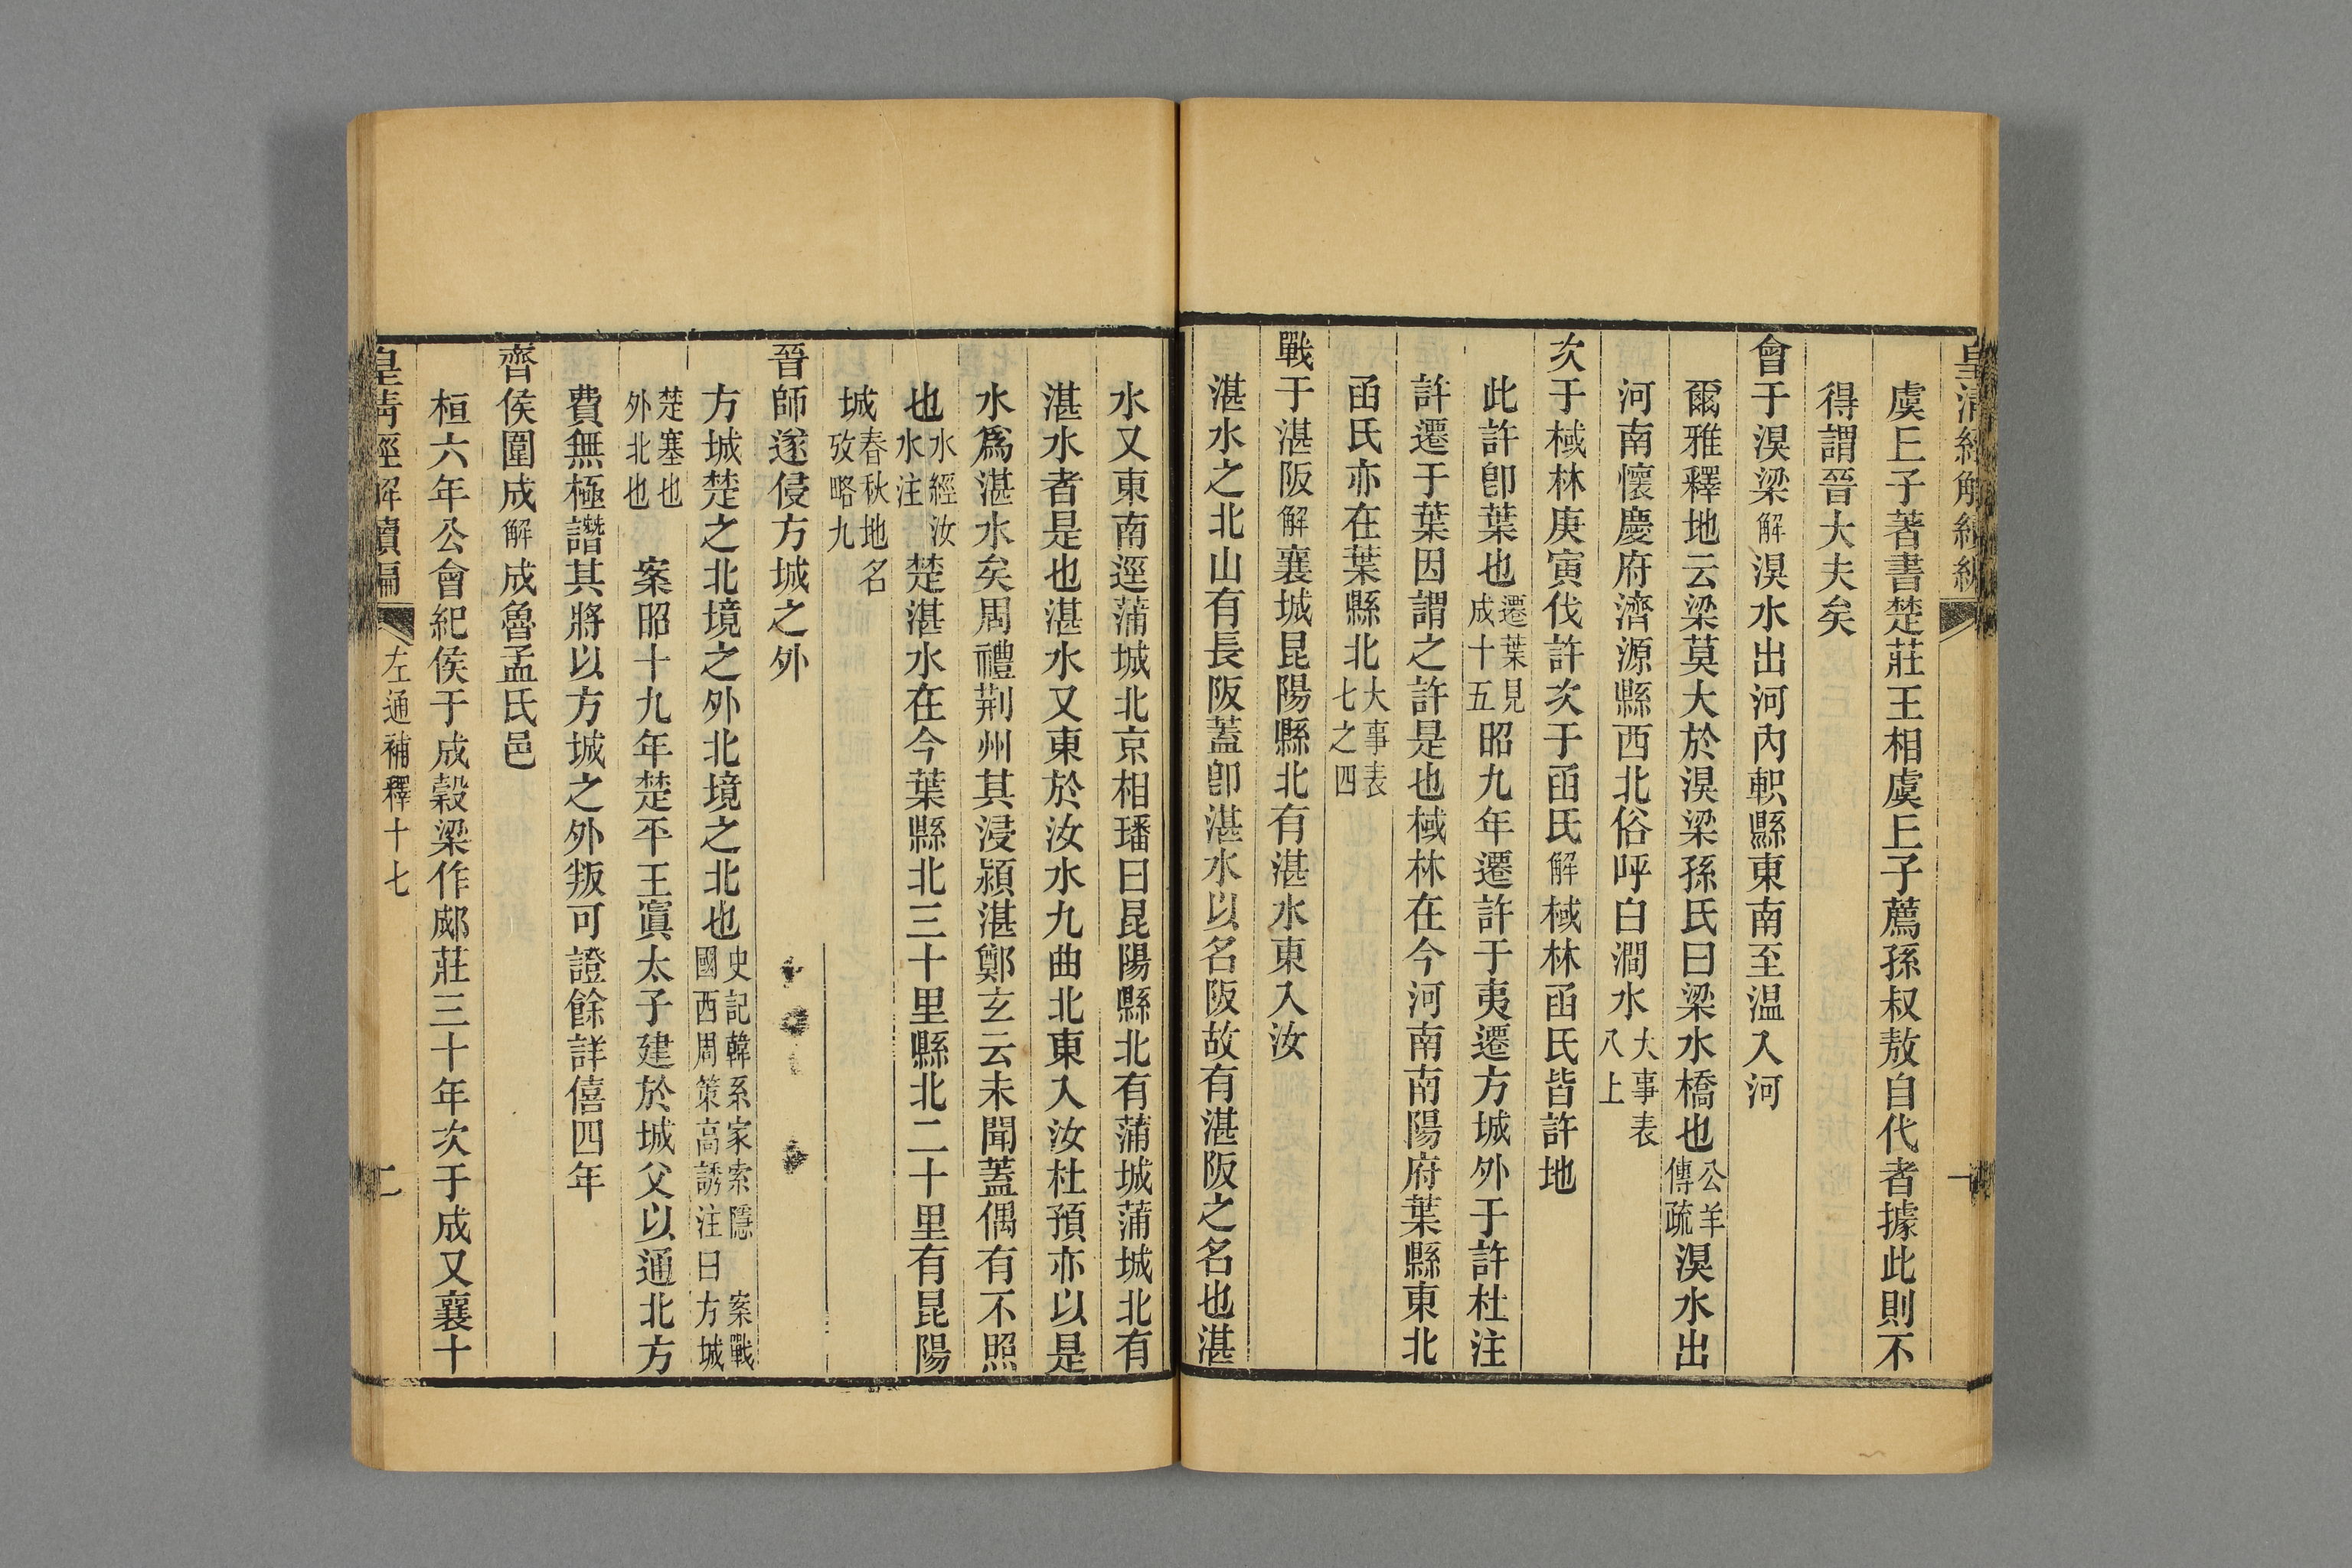 皇清經解續編 一
虞丘子著書楚莊王相虞丘子薦孫叔敖自代者據此則不
得謂晉大夫矣
會于湨梁解湨水出河內軹縣東南至温入河
爾雅釋地云梁莫大於湨梁孫氏曰梁水橋也公羊傳疏湨水出
河南懷慶府濟源縣西北俗呼白澗水大事表八上
次于棫林庚寅伐許次于函氏解棫林函氏皆許地
此許卽葉也遷葉見成十五昭九年遷許于夷遷方城外于許杜注
許遷于葉因謂之許是也棫林在今河南南陽府葉縣東北
函氏亦在葉縣北大事表七之四
戰于湛阪解襄城昆陽縣北有湛水東入汝
湛水之北山有長阪蓋卽湛水以名阪故有湛阪之名也湛
水又東南逕蒲城北京相璠曰昆陽縣北有蒲城蒲城北有
湛水者是也湛水又東於汝水九曲北東入汝杜預亦以是
水爲湛水矣周禮荆州其浸潁湛鄭玄云未聞蓋偶有不照
也水經汝水注楚湛水在今葉縣北三十里縣北二十里有昆陽
城春秋地名攷略九
晉師遂侵方城之外
方城楚之北境之外北境之北也史記韓系家索隱 案戰國西周策高誘注曰方城
楚塞也外北也 案昭十九年楚平王寘太子建於城父以通北方
費無極譖其將以方城之外叛可證餘詳僖四年
齊侯圍成解成魯孟氏邑
桓六年公會紀侯于成穀梁作郕莊三十年次于成又襄十
皇清經解續編 左通補釋十七 二